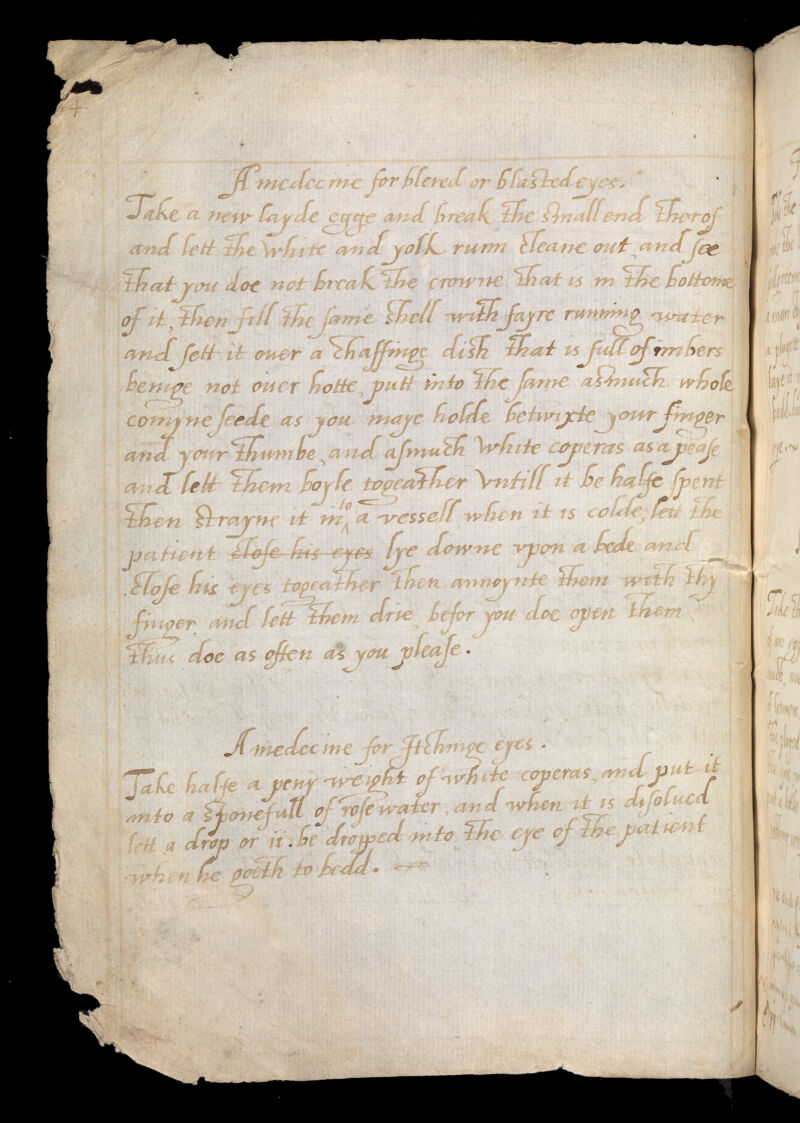 A medecine for blered or blasted eyes.
Take a new layde egge and break the small end therof
and lett the white and yolk runn cleane out, and see
that you doe not break the crowne that is in the bottome
of it, then fill the same shell with fayre running water
and sett it ouer a chaffinge dish that is full of imbers
beinge not ouer hotte, putt into the same asmuch whole
comyne seede as you maye holde betwixte your finger
and your thumbe, and asmuch white coperas as a pease
and lett them boyle togeather vntill it be halfe spent
then strayne it in^to a vessell when it is colde, lett the
patient close his eyes lye downe vpon a bede and
close his eyes togeather then annoynte them with thy
finger and lett them drie, befor you doe open them,
thus doe as often as you please.
A medecine for Itchinge eyes.
Take halfe a peny weight of white coperas, and put it
into a sponefull of rosewater, and when it is disolued
lett a drop or ii. be dropped into the eye of the patient
when he goeth to bedd.